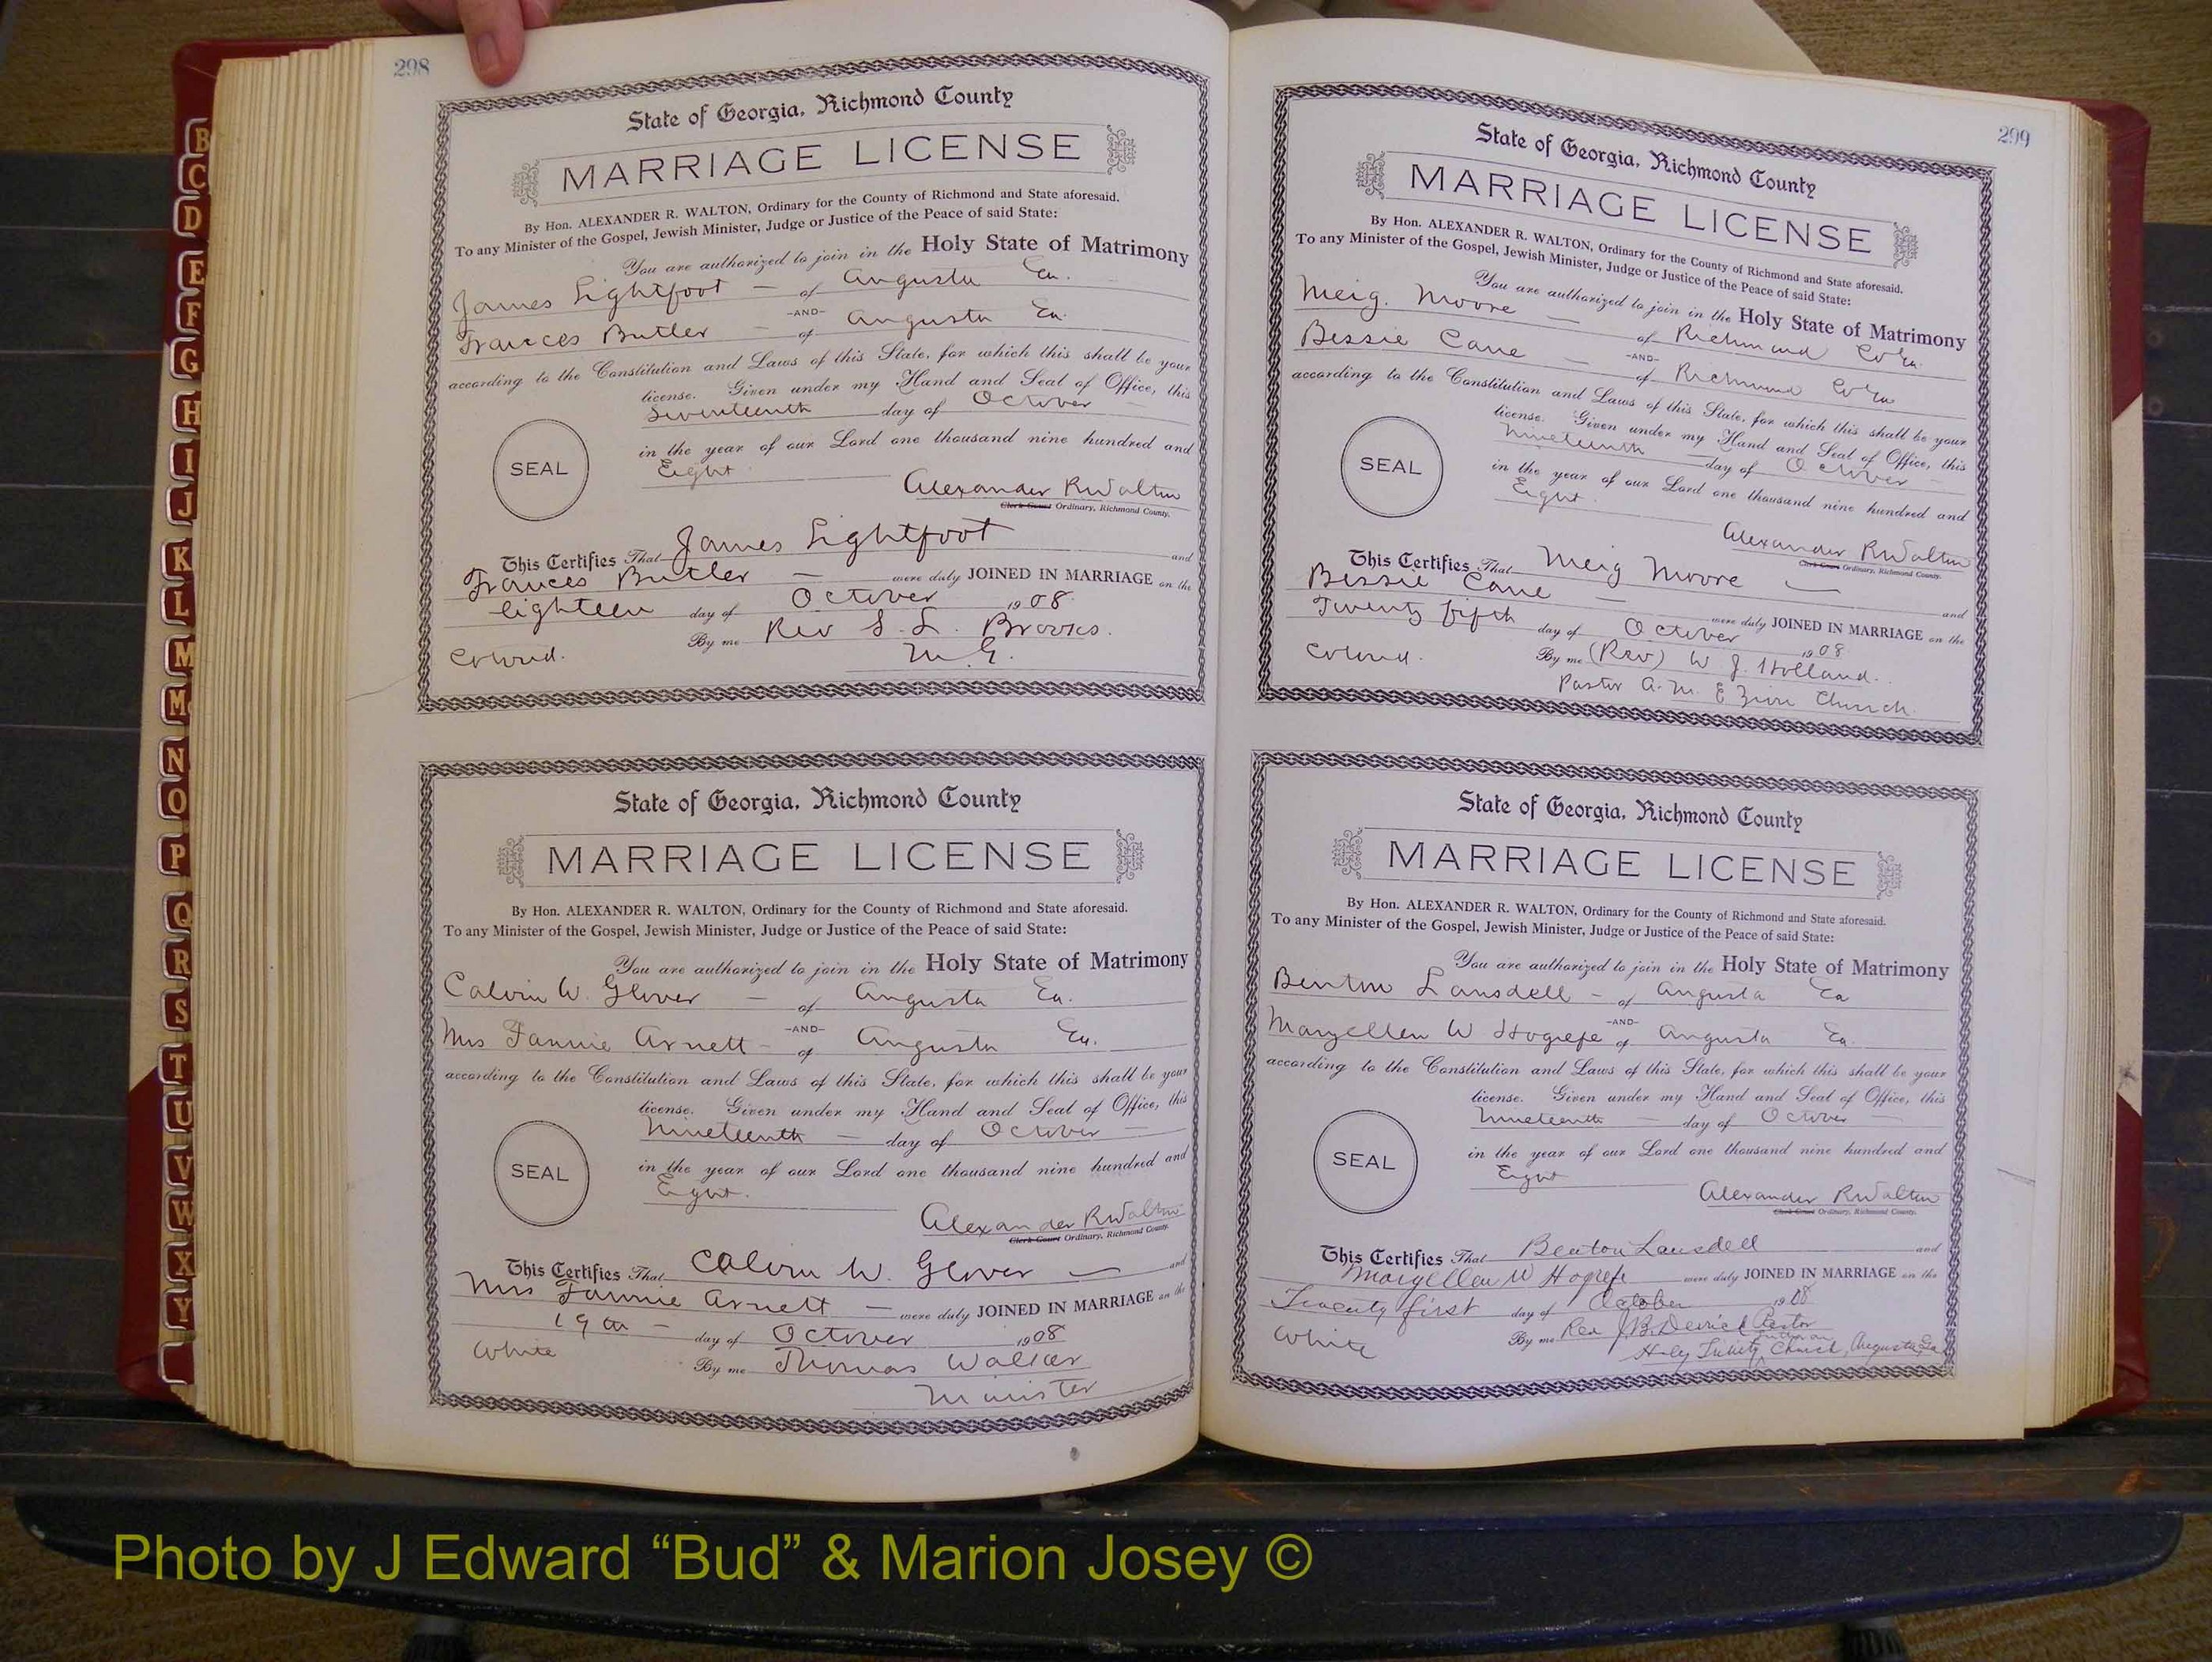 298
State of Georgia, Richmond County
MARRIAGE LICENSE
By Hon. ALEXANDER R. WALTON, Ordinary for the County of Richmond and State aforesaid.
To any Minister of the Gospel, Jewish Minister, Judge or Justice of the Peace of said State:
You are authorized to join in the Holy State of Matrimony
James Lightfoot — of Augusta Ga.
-AND-
Frances Butler — of Augusta Ga.
according to the Constitution and Laws of this State, for which this shall be your
license. Given under my Hand and Seal of Office, this
Seventeenth day of October
SEAL
in the year of our Lord one thousand nine hundred and
Eight
Alexander R Walton
Clerk Court Ordinary, Richmond County.
This Certifies That James Lightfoot and
Frances Butler — were duly JOINED IN MARRIAGE on the
eighteen day of October 1908
By me Rev S. L. Brooks.
Colored. M. G.
State of Georgia, Richmond County
MARRIAGE LICENSE
By Hon. ALEXANDER R. WALTON, Ordinary for the County of Richmond and State aforesaid.
To any Minister of the Gospel, Jewish Minister, Judge or Justice of the Peace of said State:
You are authorized to join in the Holy State of Matrimony
Calvin W. Glover — of Augusta Ga.
-AND-
Mrs Fannie Arnett — of Augusta Ga.
according to the Constitution and Laws of this State, for which this shall be your
license. Given under my Hand and Seal of Office, this
Nineteenth — day of October —
SEAL
in the year of our Lord one thousand nine hundred and
Eight.
Alexander R Walton
Clerk Court Ordinary, Richmond County.
This Certifies That Calvin W. Glover — and
Mrs Fannie Arnett — were duly JOINED IN MARRIAGE on the
19th — day of October 1908
White By me Thomas Walker
Minister
299
State of Georgia, Richmond County
MARRIAGE LICENSE
By Hon. ALEXANDER R. WALTON, Ordinary for the County of Richmond and State aforesaid.
To any Minister of the Gospel, Jewish Minister, Judge or Justice of the Peace of said State:
You are authorized to join in the Holy State of Matrimony
Meig. Moore — of Richmond Co Ga.
-AND-
Bessie Cane — of Richmond Co Ga
according to the Constitution and Laws of this State, for which this shall be your
license. Given under my Hand and Seal of Office, this
Nineteenth — day of October —
SEAL
in the year of our Lord one thousand nine hundred and
Eight.
Alexander R Walton
Clerk Court Ordinary, Richmond County.
This Certifies That Meig Moore — and
Bessie Cane — were duly JOINED IN MARRIAGE on the
Twenty fifth day of October 1908
Colored. By me (Rev) W J. Holland.
Pastor A. M. E Zion Church.
State of Georgia, Richmond County
MARRIAGE LICENSE
By Hon. ALEXANDER R. WALTON, Ordinary for the County of Richmond and State aforesaid.
To any Minister of the Gospel, Jewish Minister, Judge or Justice of the Peace of said State:
You are authorized to join in the Holy State of Matrimony
Benton Lansdell — of Augusta Ga
-AND-
Maryellen W Hogrefe of Augusta Ga.
according to the Constitution and Laws of this State, for which this shall be your
license. Given under my Hand and Seal of Office, this
Nineteenth — day of October —
SEAL
in the year of our Lord one thousand nine hundred and
Eight
Alexander R Walton
Clerk Court Ordinary, Richmond County.
This Certifies That Benton Lansdell and
Maryellen W Hogrefe were duly JOINED IN MARRIAGE on the
Twenty first day of October 1908
White By me Rev J. B. Derrick Pastor
Holy Trinity Lutheran Church, Augusta, Ga
B
C
D
E
F
G
H
I
J
K
L
M
Mc
N
O
P
Q
R
S
T
U
V
W
X
Y
Photo by J Edward “Bud” & Marion Josey ©